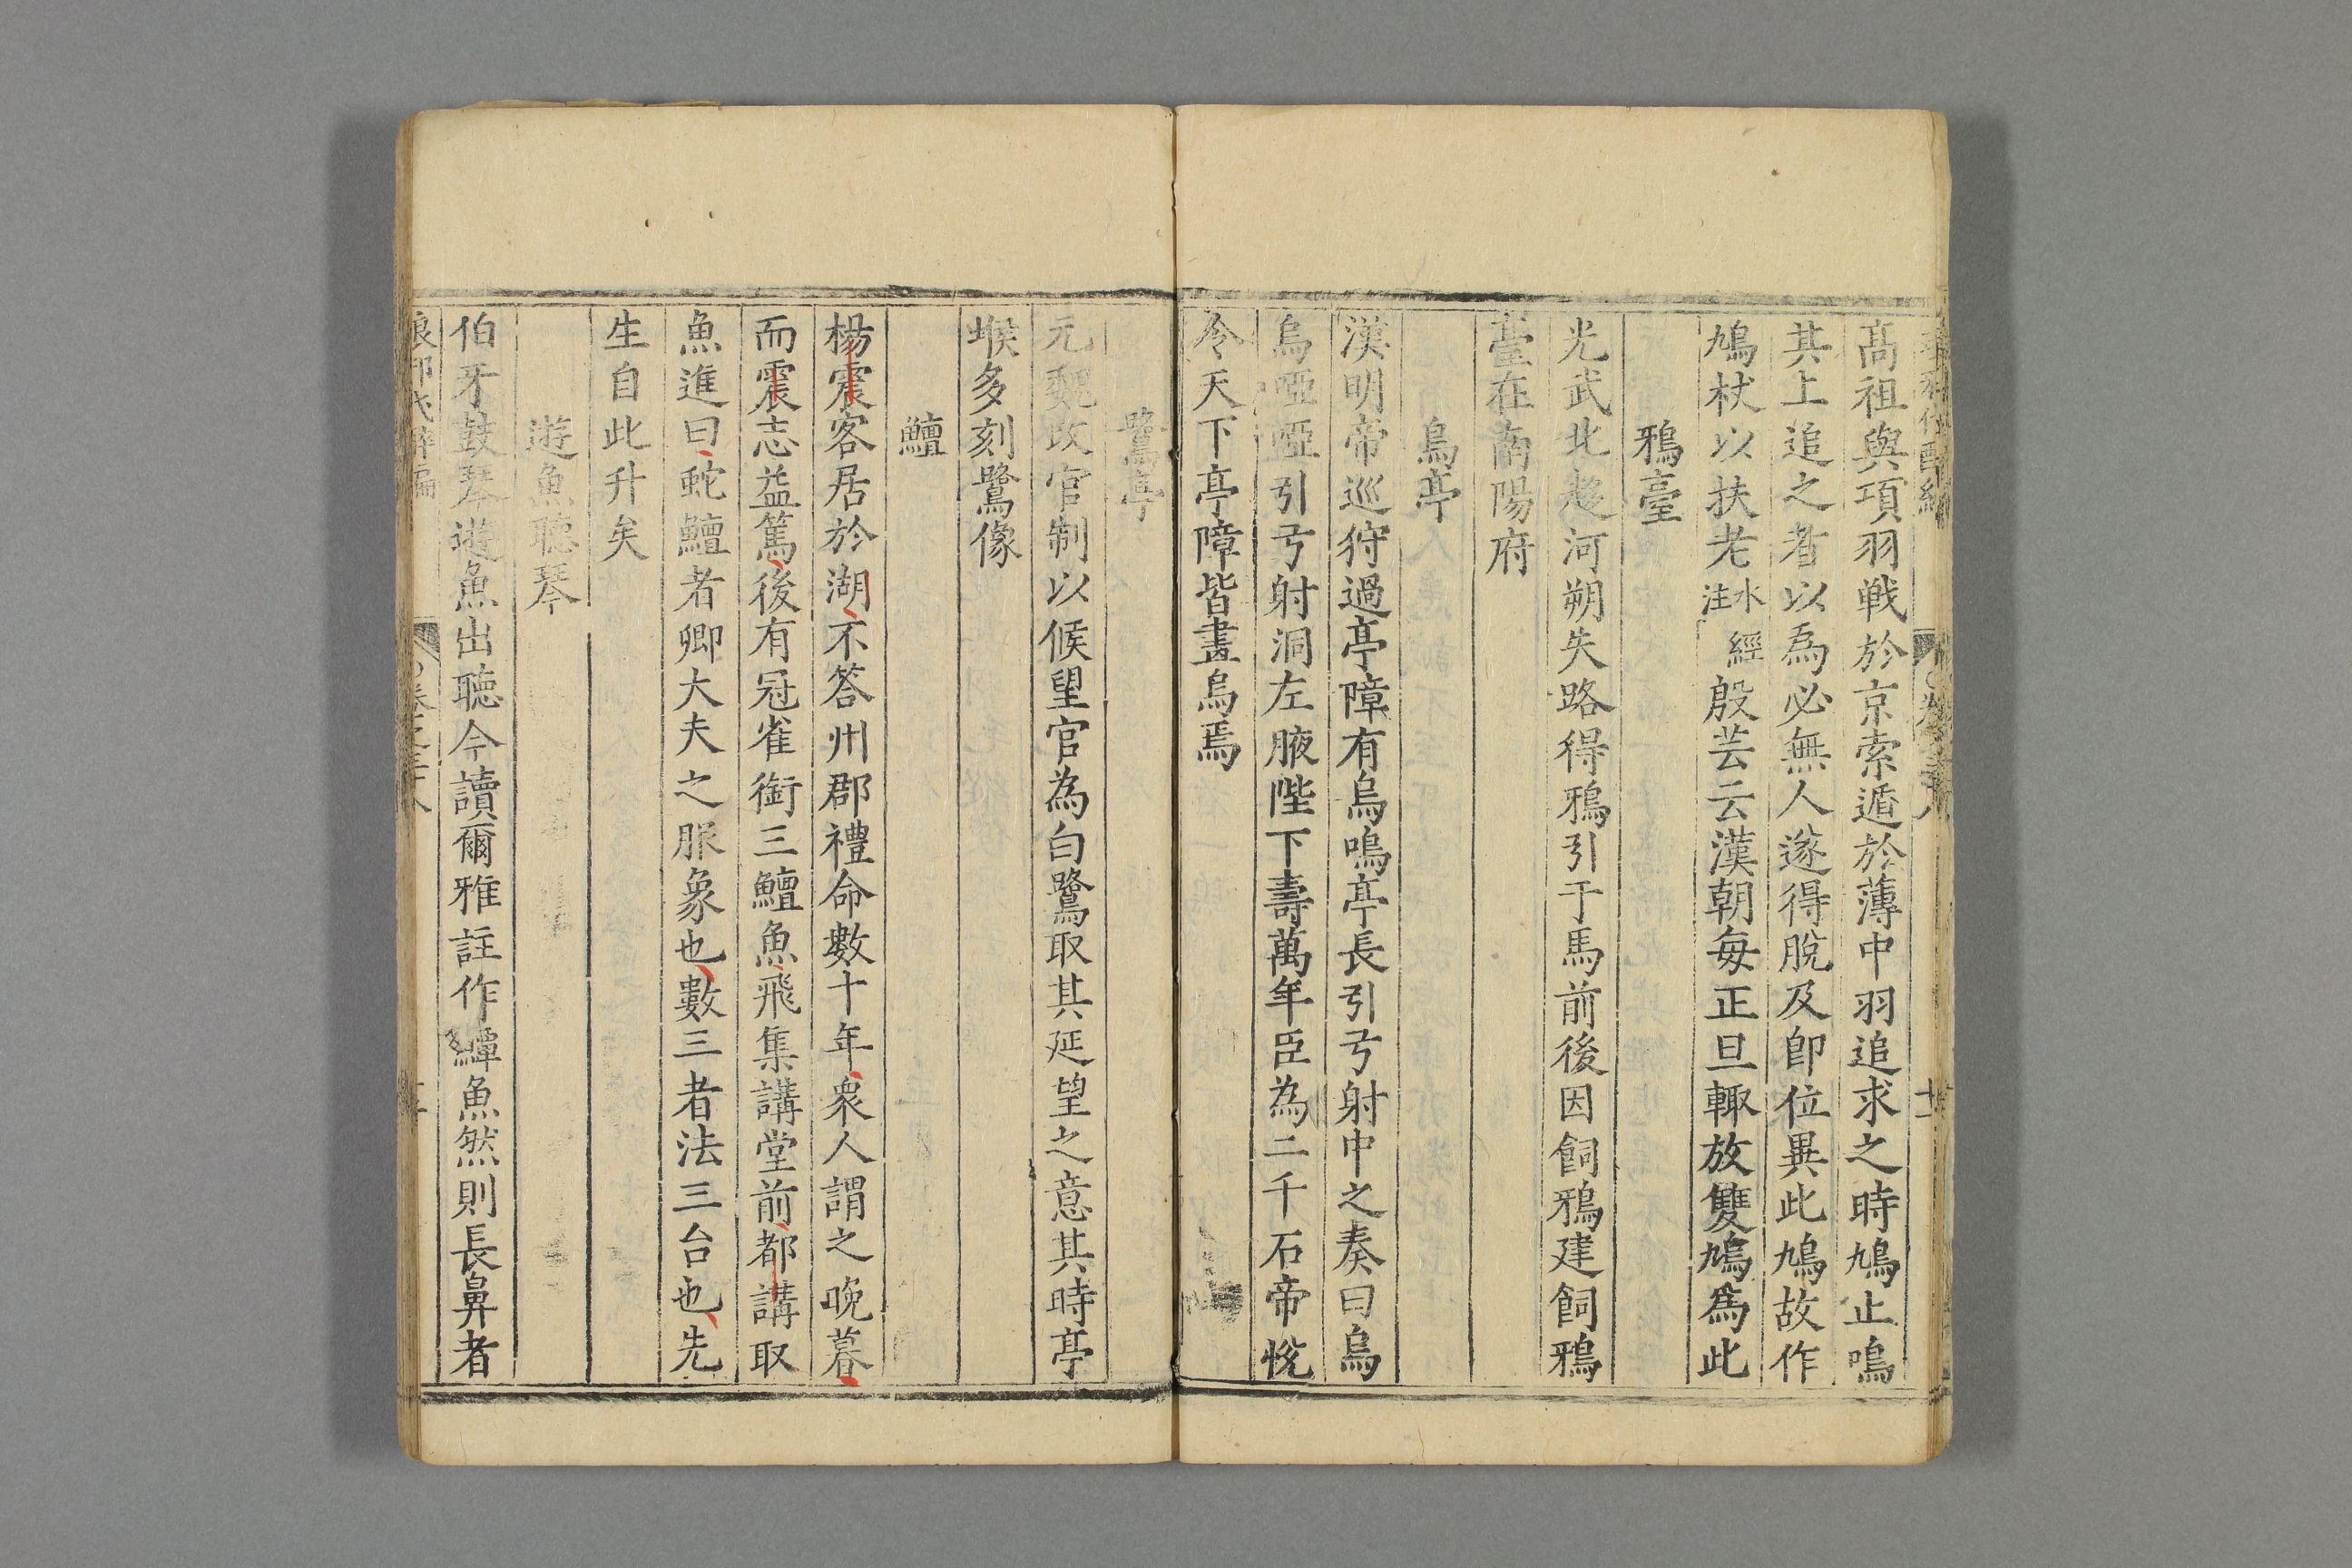 高祖與項羽戰於京索遁於薄中羽追求之時鳩止鳴
其上追之者以為必無人遂得脫及卽位異此鳩故作
鳩杖以扶老水經注殷芸云漢朝每正旦輙放雙鳩爲此
鴉臺
光武北趍河朔失路得鴉引于馬前後因飼鴉建飼鴉
臺在南陽府
烏亭
漢明帝巡狩過亭障有烏鳴亭長引弓射中之奏曰烏
烏啞啞引弓射洞左腋陛下壽萬年臣為二千石帝悅
令天下亭障皆畫烏焉
鷺亭
元魏改官制以候望官為白鷺取其延望之意其時亭
堠多刻鷺像
鱣
楊震客居於湖不答州郡禮命數十年衆人謂之晚暮
而震志益篤後有冠雀銜三鱣魚飛集講堂前都講取
魚進曰蛇鱣者卿大夫之服象也數三者法三台也先
生自此升矣
遊魚聽琴
伯牙鼓琴遊魚出聽今讀爾雅註作鱏魚然則長鼻者
琅邪代醉編 卷之三十八